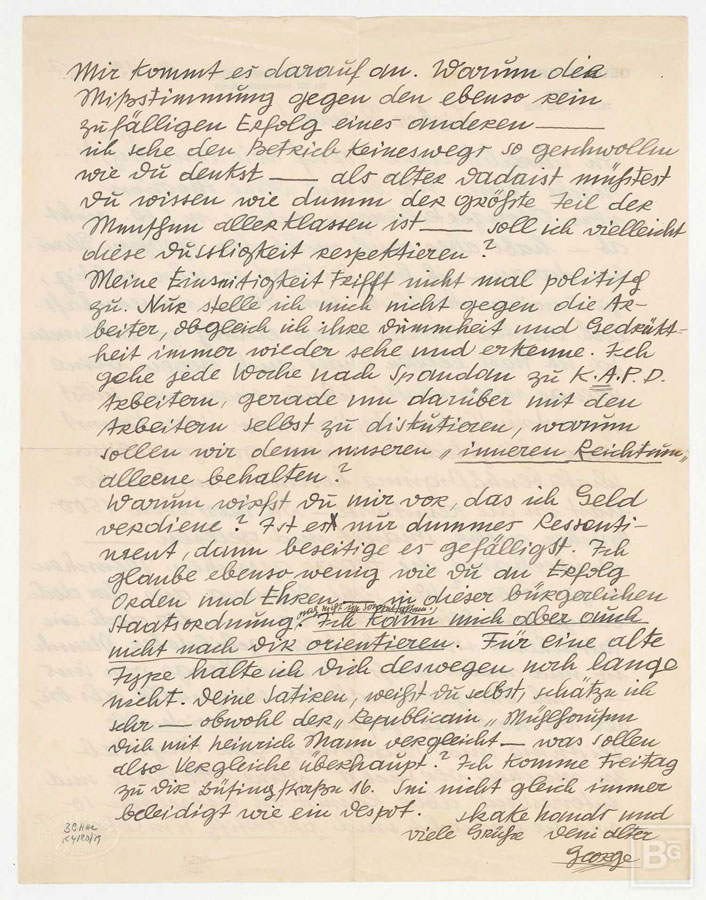 Mir kommt es darauf an. Warum die
Mißstimmung gegen den ebenso rein
zufälligen Erfolg eines anderen —
ich sehe den Betrieb keineswegs so geschwollen
wie du denkst — als alter Dadaist müßtest
du wissen wie dumm der größte Teil der
Menschen aller Klassen ist — soll ich vielleicht
diese Dussligkeit respektieren?
Meine Einseitigkeit trifft nicht mal politisch
zu. Nur stelle ich mich nicht gegen die Ar-
beiter, obgleich ich ihre Dummheit und Gedrückt-
heit immer wieder sehe und erkenne. Ich
gehe jede Woche nach Spandau zu K.A.P.D.
Arbeitern, gerade um darüber mit den
Arbeitern selbst zu diskutieren, warum
sollen wir denn unseren „inneren Reichtum„
alleene behalten?
Warum wirfst du mir vor, das ich Geld
verdiene? Ist es nur dummes Ressenti-
ment, dann beseitige es gefälligst. Ich
glaube ebenso wenig wie du an Erfolg
Orden und Ehren — in dieser bürgerlichen
Staatsordnung. Ich kann mich aber auch
nicht nach dir orientieren. Für eine alte
Type halte ich dich deswegen noch lange
nicht. Deine Satiren, weißt du selbst, schätze ich
sehr — obwohl der „Republicain„ Mühlhausen
dich mit Heinrich Mann vergleicht — was sollen
also Vergleiche überhaupt? Ich komme Freitag
zu dir Büsingstraße 16. Sei nicht gleich immer
beleidigt wie ein Despot. shake hands und
viele Grüße dein alter
George
BG